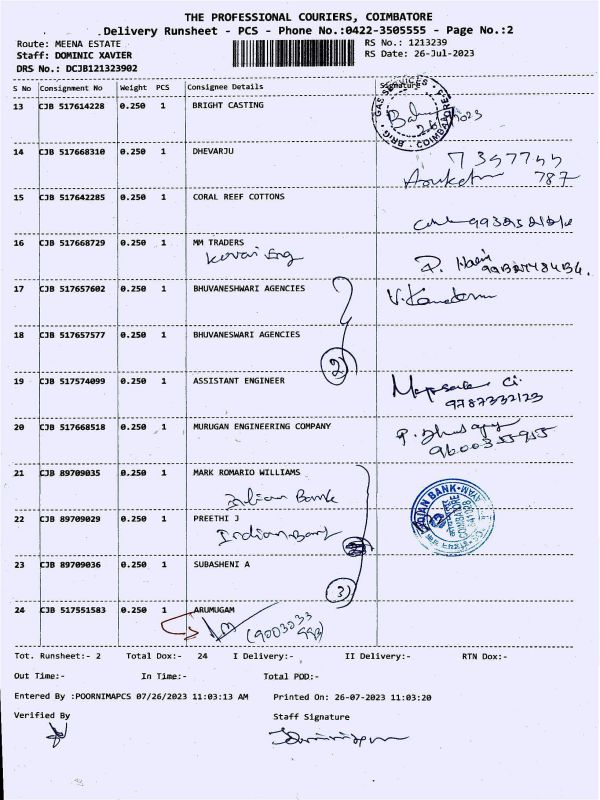 THE PROFESSIONAL COURIERS, COIMBATORE
Delivery Runsheet - PCS - Phone No.:0422-3505555 - Page No.:2
Route: MEENA ESTATE RS No.: 1213239
Staff: DOMINIC XAVIER RS Date: 26-Jul-2023
DRS No.: DCJB121323902
S No Consignment No Weight PCS Consignee Details Signature
13 CJB 517614228 0.250 1 BRIGHT CASTING
14 CJB 517668310 0.250 1 DHEVARJU
787
15 CJB 517642285 0.250 1 CORAL REEF COTTONS
16 CJB 517668729 0.250 1 MM TRADERS
Kovai Eng
17 CJB 517657602 0.250 1 BHUVANESHWARI AGENCIES
18 CJB 517657577 0.250 1 BHUVANESWARI AGENCIES
2
19 CJB 517574099 0.250 1 ASSISTANT ENGINEER
9787332123
20 CJB 517668518 0.250 1 MURUGAN ENGINEERING COMPANY
9600355955
21 CJB 89709035 0.250 1 MARK ROMARIO WILLIAMS
Indian Bank
INDIAN BANK
22 CJB 89709029 0.250 1 PREETHI J
Indian Bank
23 CJB 89709036 0.250 1 SUBASHENI A
3
24 CJB 517551583 0.250 1 ARUMUGAM
(9003033
993)
Tot. Runsheet:- 2 Total Dox:- 24 I Delivery:- II Delivery:- RTN Dox:-
Out Time:- In Time:- Total POD:-
Entered By :POORNIMAPCS 07/26/2023 11:03:13 AM Printed On: 26-07-2023 11:03:20
Verified By Staff Signature